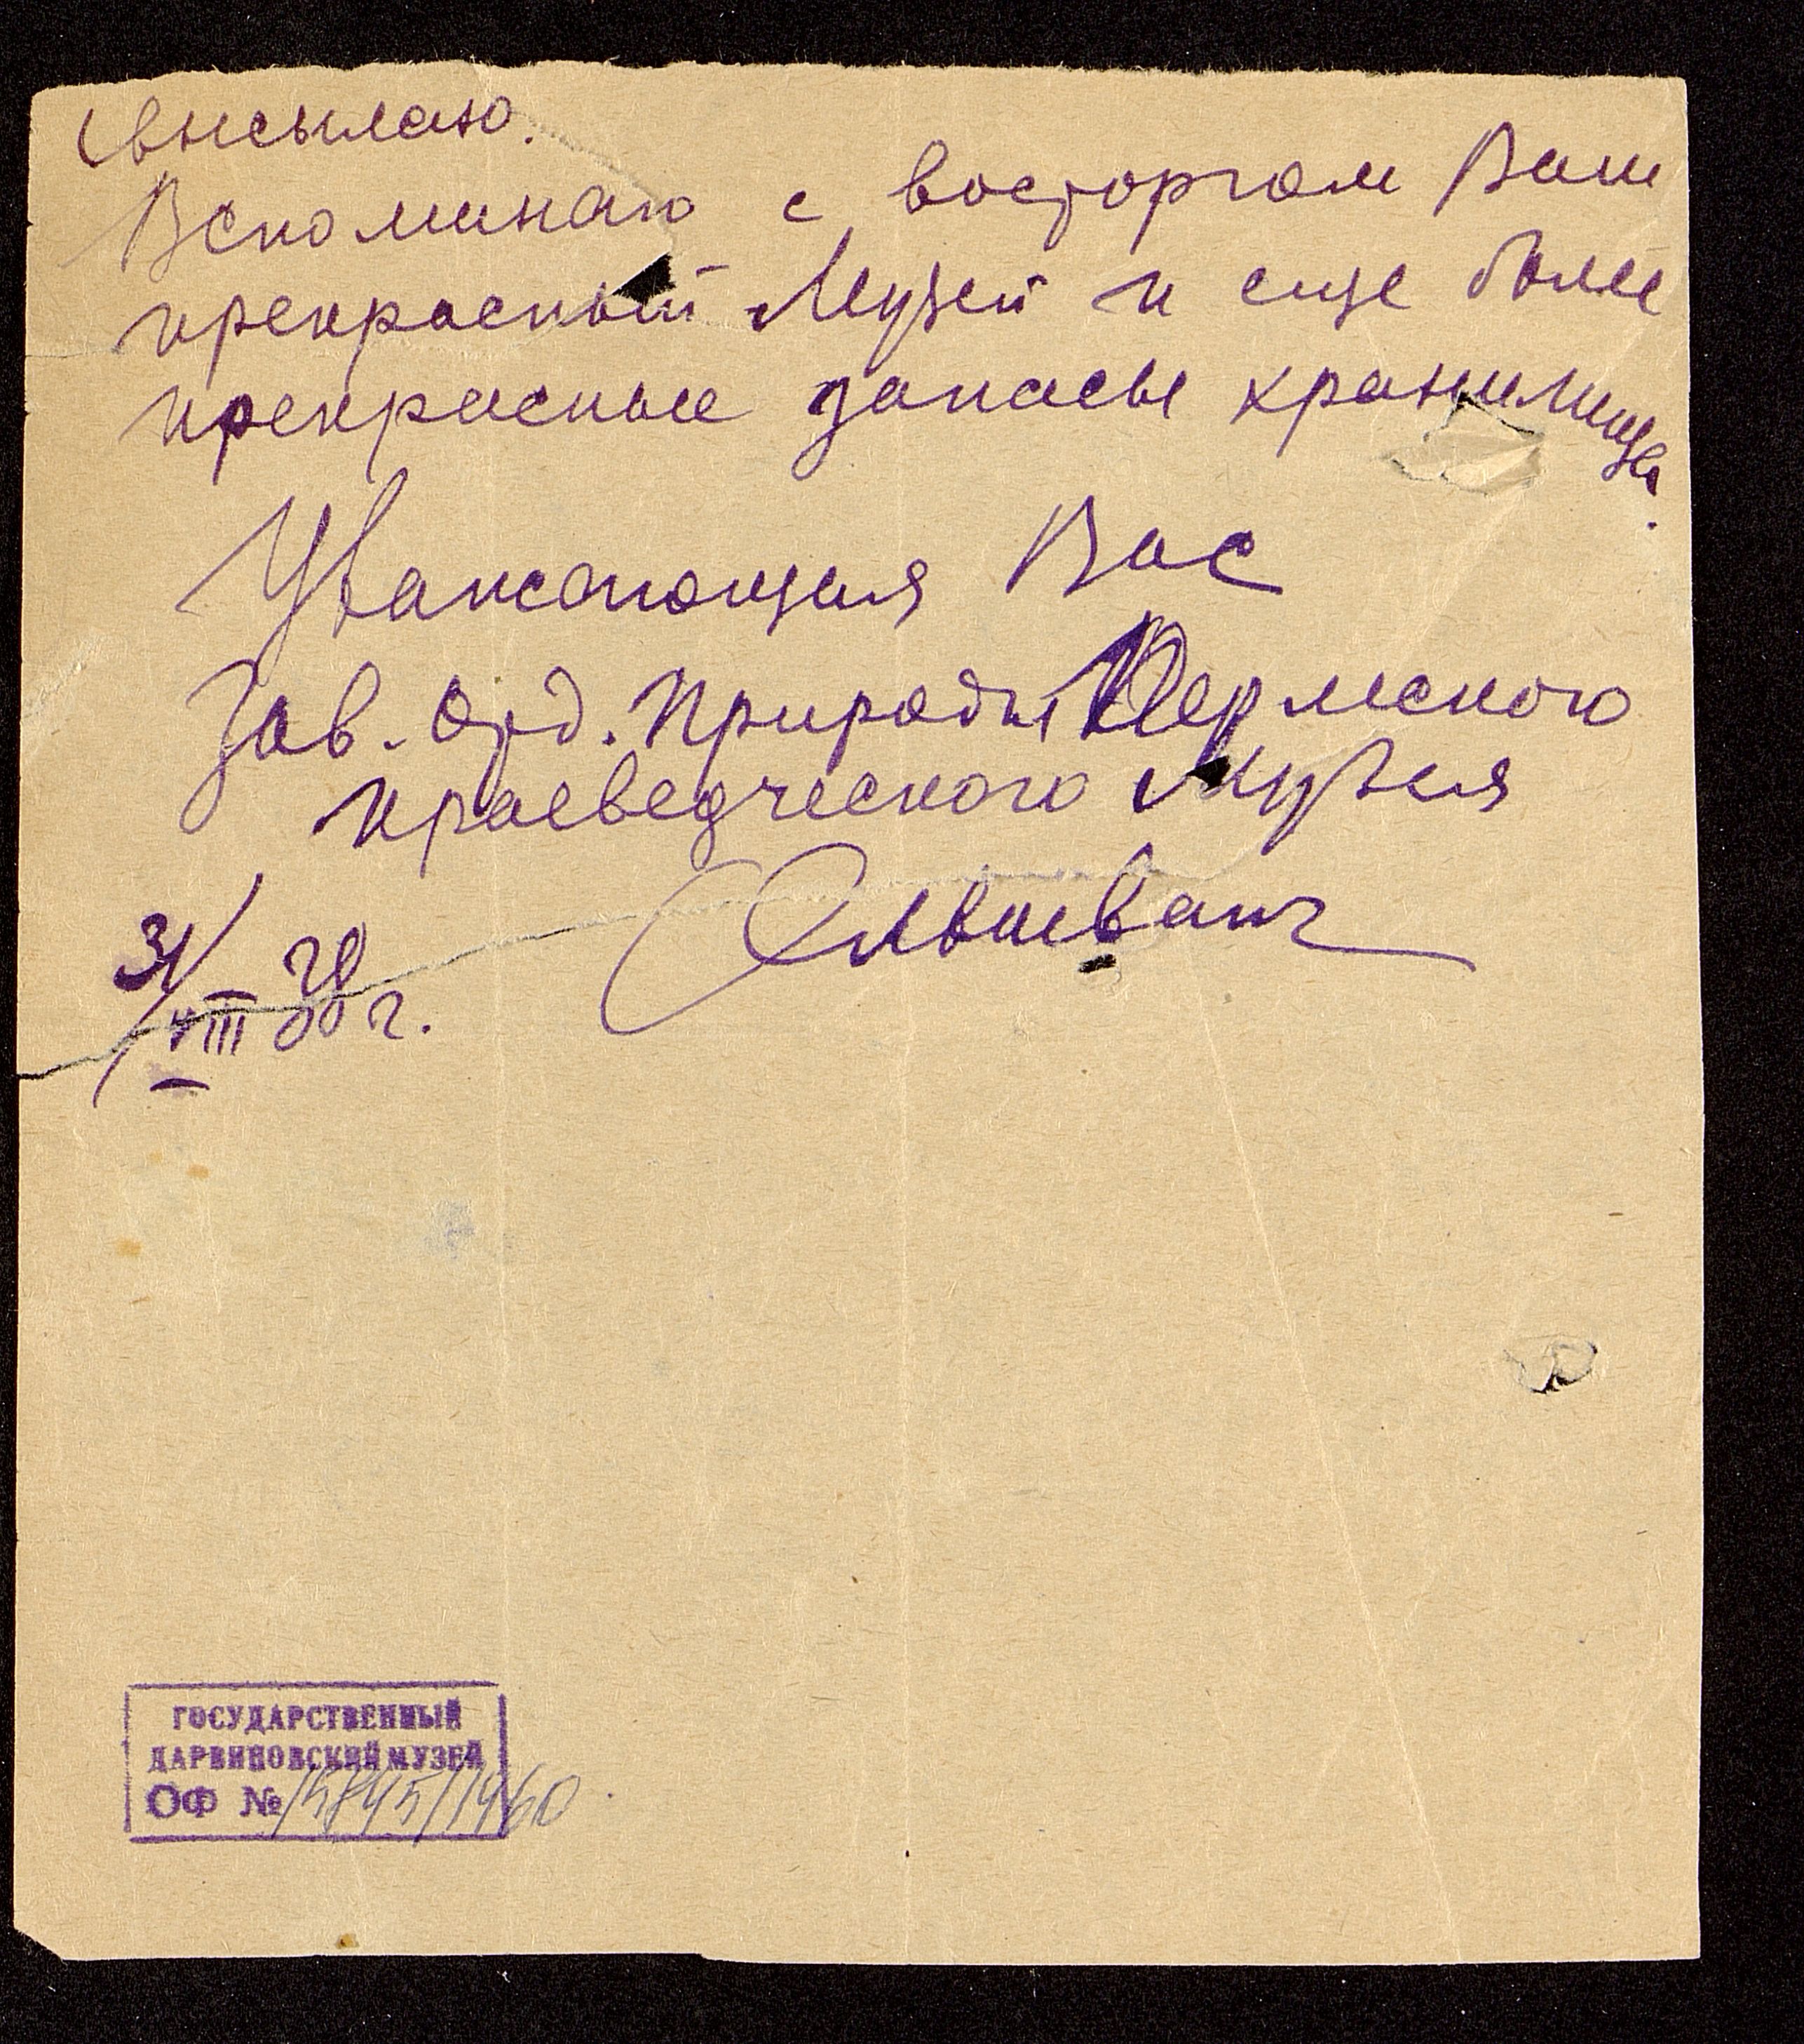 высылаю.
Вспоминаю с восторгом Ваш
прекрасный Музей и еще более
прекрасные запасы хранилища.
Уважающая Вас
Зав. Отд. Природы Пермского
краеведческого музея
31/VIII г.
ГОСУДАРСТВЕННЫЙ
ДАРВИНОВСКИЙ МУЗЕЙ
ОФ № 15845/1960